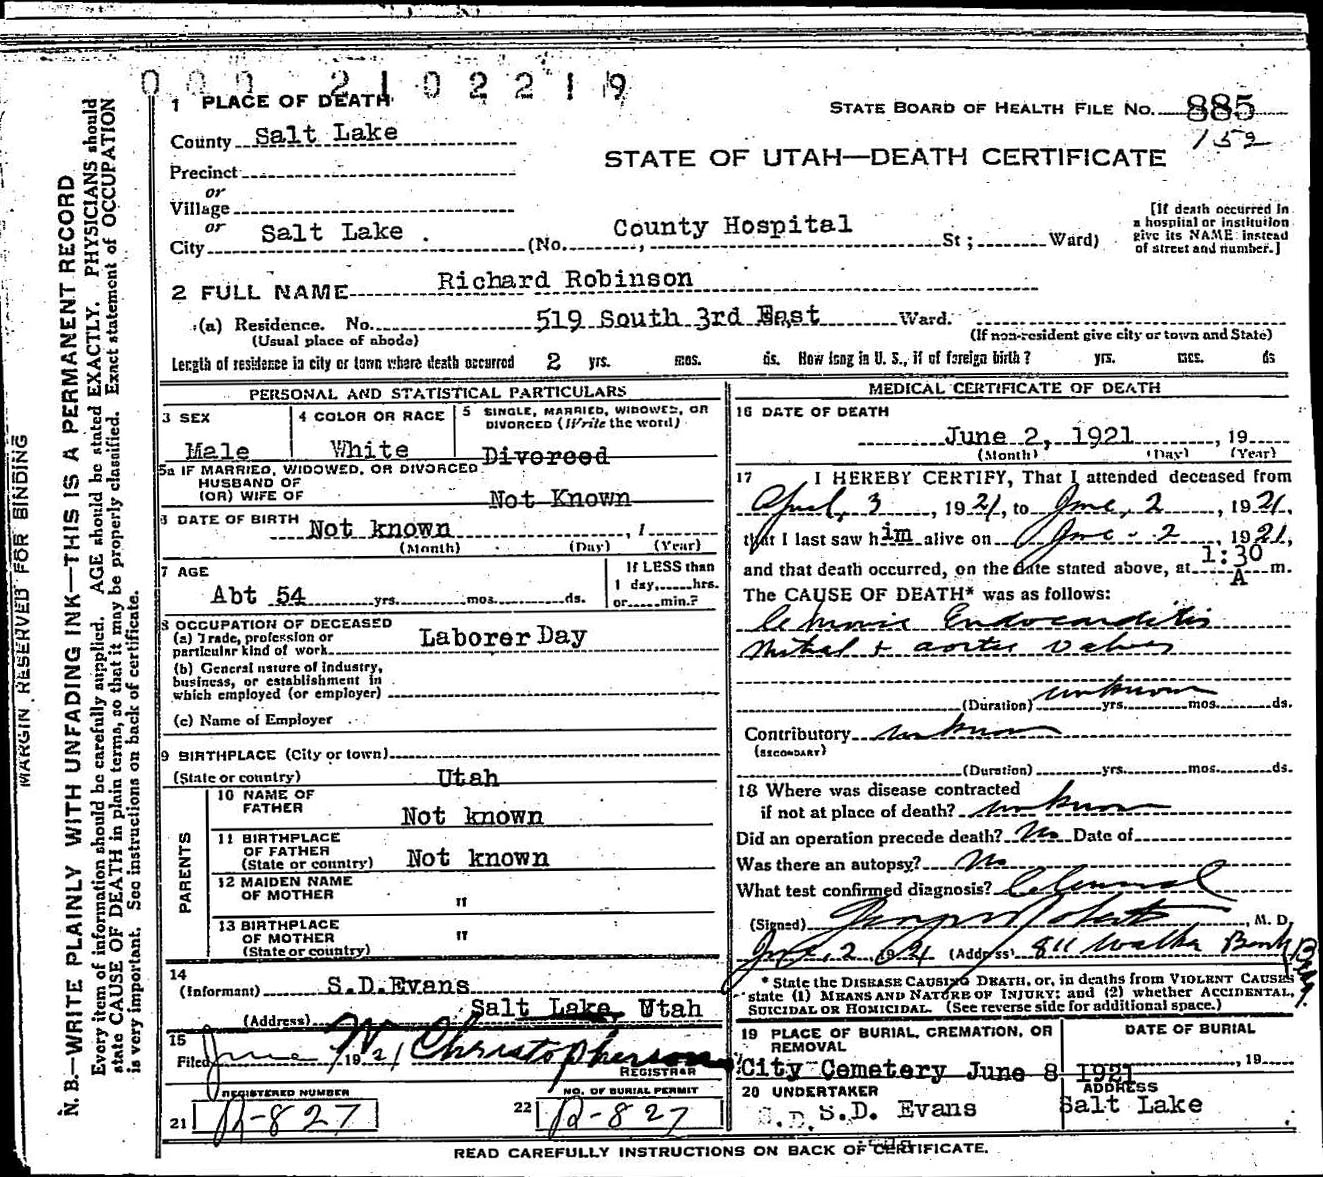 000 2102219
1 PLACE OF DEATH
STATE BOARD OF HEALTH FILE NO. 885
152
County Salt Lake
STATE OF UTAH—DEATH CERTIFICATE
Precinct
or
Village
or
City Salt Lake . (No. , County Hospital St ; Ward)
[If death occurred in
a hospital or institution
give its NAME instead
of street and number.]
2 FULL NAME Richard Robinson
(a) Residence. No. 519 South 3rd East Ward.
(Usual place of abode)
(If non-resident give city or town and State)
Length of residence in city or town where death occurred 2 yrs. mos. ds. How long in U. S., if of foreign birth? yrs. mos. ds
PERSONAL AND STATISTICAL PARTICULARS
3 SEX
Male
4 COLOR OR RACE
White
5 SINGLE, MARRIED, WIDOWED, OR
DIVORCED (Write the word)
Divorced
5a IF MARRIED, WIDOWED, OR DIVORCED
HUSBAND OF
(OR) WIFE OF Not Known
6 DATE OF BIRTH Not known , 1
(Month) (Day) (Year)
7 AGE
Abt 54 yrs. mos. ds.
If LESS than
1 day, hrs.
or min.?
8 OCCUPATION OF DECEASED
(a) Trade, profession or
particular kind of work Laborer Day
(b) General nature of industry,
business, or establishment in
which employed (or employer)
(c) Name of Employer
9 BIRTHPLACE (City or town)
(State or country) Utah
PARENTS
10 NAME OF
FATHER Not known
11 BIRTHPLACE
OF FATHER
(State or country) Not known
12 MAIDEN NAME
OF MOTHER "
13 BIRTHPLACE
OF MOTHER "
(State or country)
14
(Informant) S.D.Evans
(Address) Salt Lake, Utah
15
Filed June 1921 W. Christopherson
REGISTRAR
REGISTERED NUMBER
21 R-827
NO. OF BURIAL PERMIT
22 R-827
MEDICAL CERTIFICATE OF DEATH
16 DATE OF DEATH
June 2, 1921 , 19
(Month) (Day) (Year)
17 I HEREBY CERTIFY, That I attended deceased from
April, 3 , 1921, to June, 2 , 1921,
that I last saw him alive on June 2 , 1921,
and that death occurred, on the date stated above, at 1:30 A m.
The CAUSE OF DEATH* was as follows:
Chronic Endocarditis
mitral + aortic valves
unknown
(Duration) yrs. mos. ds.
Contributory unknown
(SECONDARY)
(Duration) yrs. mos. ds.
18 Where was disease contracted
if not at place of death? unknown
Did an operation precede death? No Date of
Was there an autopsy? No
What test confirmed diagnosis? Clinical
(Signed) Roberts , M. D.
June, 2 1921 (Address) 811 Walker Bank Bldg.
* State the DISEASE CAUSING DEATH, or, in deaths from VIOLENT CAUSES
state (1) MEANS AND NATURE OF INJURY; and (2) whether ACCIDENTAL,
SUICIDAL OR HOMICIDAL (See reverse side for additional space.)
19 PLACE OF BURIAL, CREMATION, OR
REMOVAL
DATE OF BURIAL
, 19
City Cemetery June 8 1921
20 UNDERTAKER
S.D. S.D. Evans
ADDRESS
Salt Lake
READ CAREFULLY INSTRUCTIONS ON BACK OF CERTIFICATE.
MARGIN RESERVED FOR BINDING
N. B.—WRITE PLAINLY WITH UNFADING INK—THIS IS A PERMANENT RECORD
Every item of information should be carefully supplied. AGE should be stated EXACTLY. PHYSICIANS should
state CAUSE OF DEATH in plain terms, so that it may be properly classified. Exact statement of OCCUPATION
is very important. See instructions on back of certificate.